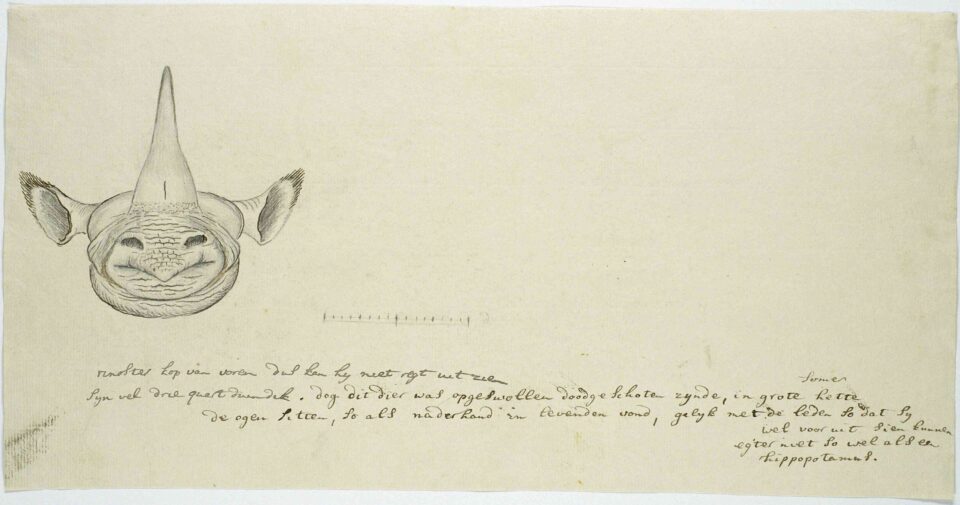 rinoster kop van voren dus kan hy niet regt uit zien
syn vel drie quert duim dik. dog dit dier was opgeswollen doodgeschoten zynde, in grote hette
somer
de ogen sitten, so als naderhand in levenden vond, gelyk met de leden so dat sy
wel voor uit sien kunnen
egter niet so wel als een
hippopotamus.